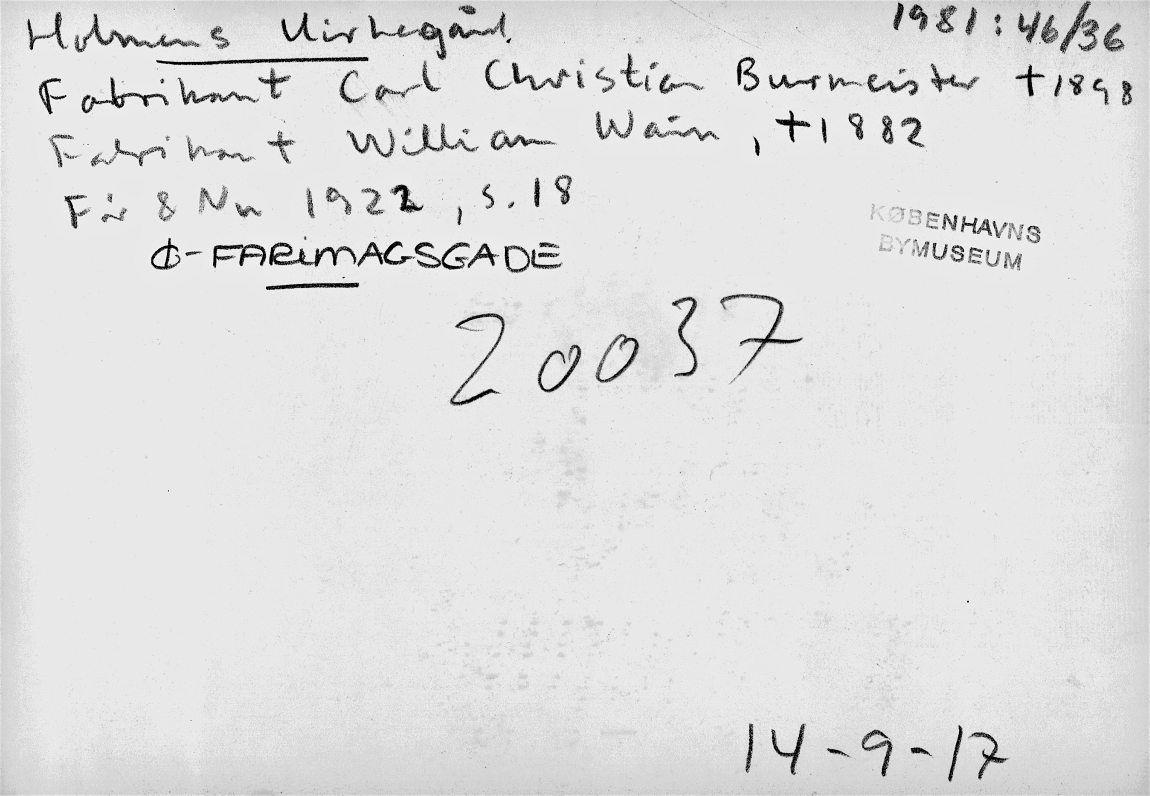 Holmens Kirkegård.
1981:46/36
Fabrikant Carl Christian Burmeister †1898
Fabrikant William Wain, †1882
Før 8 Nov 1922, s. 18
Ø-FARIMAGSGADE
KØBENHAVNS
BYMUSEUM
20037
14-9-17